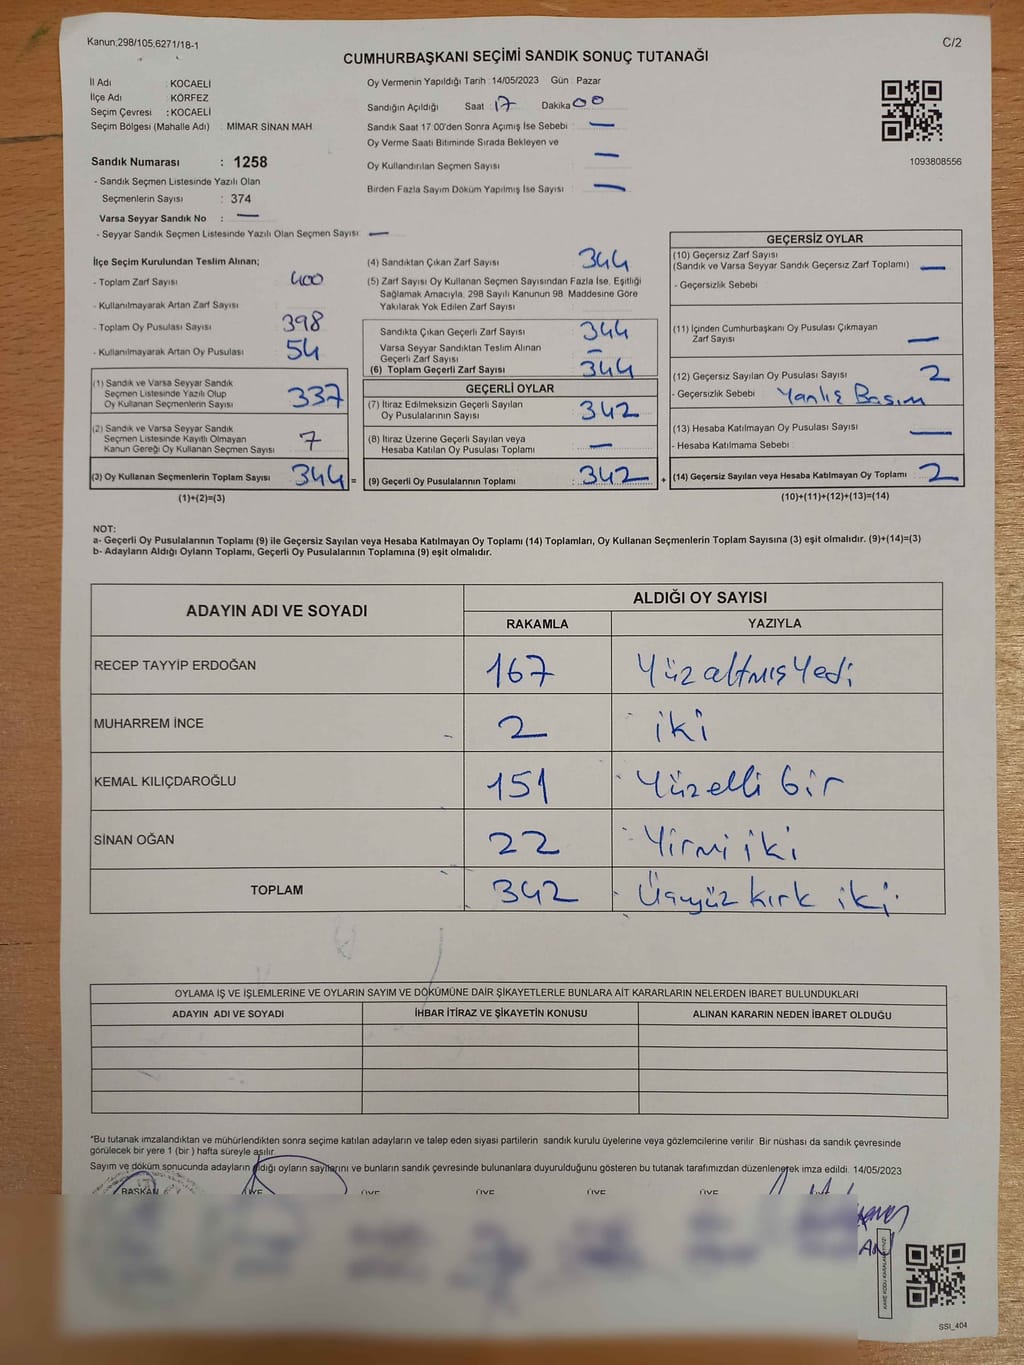 Kanun;298/105,6271/18-1
C/2
CUMHURBAŞKANI SEÇİMİ SANDIK SONUÇ TUTANAĞI
İl Adı : KOCAELİ
İlçe Adı : KÖRFEZ
Seçim Çevresi : KOCAELİ
Seçim Bölgesi (Mahalle Adı) : MİMAR SİNAN MAH
Sandık Numarası : 1258
- Sandık Seçmen Listesinde Yazılı Olan
Seçmenlerin Sayısı : 374
Varsa Seyyar Sandık No : —
- Seyyar Sandık Seçmen Listesinde Yazılı Olan Seçmen Sayısı: —
Oy Vermenin Yapıldığı Tarih : 14/05/2023 Gün : Pazar
Sandığın Açıldığı Saat : 17 Dakika 00
Sandık Saat 17:00'den Sonra Açımış İse Sebebi : —
Oy Verme Saati Bitiminde Sırada Bekleyen ve
Oy Kullandırılan Seçmen Sayısı —
Birden Fazla Sayım Döküm Yapılmış İse Sayısı : —
1093808556
İlçe Seçim Kurulundan Teslim Alınan;
- Toplam Zarf Sayısı : 400
- Kullanılmayarak Artan Zarf Sayısı :
- Toplam Oy Pusulası Sayısı : 398
- Kullanılmayarak Artan Oy Pusulası : 54
(1) Sandık ve Varsa Seyyar Sandık
Seçmen Listesinde Yazılı Olup
Oy Kullanan Seçmenlerin Sayısı : 337
(2) Sandık ve Varsa Seyyar Sandık
Seçmen Listesinde Kayıtlı Olmayan
Kanun Gereği Oy Kullanan Seçmen Sayısı : 7
(3) Oy Kullanan Seçmenlerin Toplam Sayısı : 344 =
(1)+(2)=(3)
(4) Sandıktan Çıkan Zarf Sayısı : 344
(5) Zarf Sayısı Oy Kullanan Seçmen Sayısından Fazla İse, Eşitliği
Sağlamak Amacıyla, 298 Sayılı Kanunun 98. Maddesine Göre
Yakılarak Yok Edilen Zarf Sayısı :
Sandıkta Çıkan Geçerli Zarf Sayısı : 344
Varsa Seyyar Sandıktan Teslim Alınan
Geçerli Zarf Sayısı : —
(6) Toplam Geçerli Zarf Sayısı : 344
GEÇERLİ OYLAR
(7) İtiraz Edilmeksizin Geçerli Sayılan
Oy Pusulalarının Sayısı : 342
(8) İtiraz Üzerine Geçerli Sayılan veya
Hesaba Katılan Oy Pusulası Toplamı : —
(9) Geçerli Oy Pusulalarının Toplamı : 342 +
GEÇERSİZ OYLAR
(10) Geçersiz Zarf Sayısı
(Sandık ve Varsa Seyyar Sandık Geçersiz Zarf Toplamı) : —
- Geçersizlik Sebebi :
(11) İçinden Cumhurbaşkanı Oy Pusulası Çıkmayan
Zarf Sayısı : —
(12) Geçersiz Sayılan Oy Pusulası Sayısı : 2
- Geçersizlik Sebebi : Yanlış Basım
(13) Hesaba Katılmayan Oy Pusulası Sayısı : —
- Hesaba Katılmama Sebebi :
(14) Geçersiz Sayılan veya Hesaba Katılmayan Oy Toplamı : 2
(10)+(11)+(12)+(13)=(14)
NOT:
a- Geçerli Oy Pusulalarının Toplamı (9) ile Geçersiz Sayılan veya Hesaba Katılmayan Oy Toplamı (14) Toplamları, Oy Kullanan Seçmenlerin Toplam Sayısına (3) eşit olmalıdır. (9)+(14)=(3)
b- Adayların Aldığı Oyların Toplamı, Geçerli Oy Pusulalarının Toplamına (9) eşit olmalıdır.
ADAYIN ADI VE SOYADI
ALDIĞI OY SAYISI
RAKAMLA YAZIYLA
RECEP TAYYİP ERDOĞAN 167 Yüzaltmışyedi
MUHARREM İNCE 2 iki
KEMAL KILIÇDAROĞLU 151 Yüzelli bir
SİNAN OĞAN 22 Yirmi iki
TOPLAM 342 Üçyüz kırk iki
OYLAMA İŞ VE İŞLEMLERİNE VE OYLARIN SAYIM VE DÖKÜMÜNE DAİR ŞİKAYETLERLE BUNLARA AİT KARARLARIN NELERDEN İBARET BULUNDUKLARI
ADAYIN ADI VE SOYADI İHBAR İTİRAZ VE ŞİKAYETİN KONUSU ALINAN KARARIN NEDEN İBARET OLDUĞU
*Bu tutanak imzalandıktan ve mühürlendikten sonra seçime katılan adayların ve talep eden siyasi partilerin sandık kurulu üyelerine veya gözlemcilerine verilir. Bir nüshası da sandık çevresinde
görülecek bir yere 1 (bir) hafta süreyle asılır.
Sayım ve döküm sonucunda adayların aldığı oyların sayılarını ve bunların sandık çevresinde bulunanlara duyurulduğunu gösteren bu tutanak tarafımızdan düzenlenerek imza edildi. 14/05/2023
BAŞKAN ÜYE ÜYE ÜYE ÜYE ÜYE
SSI_404